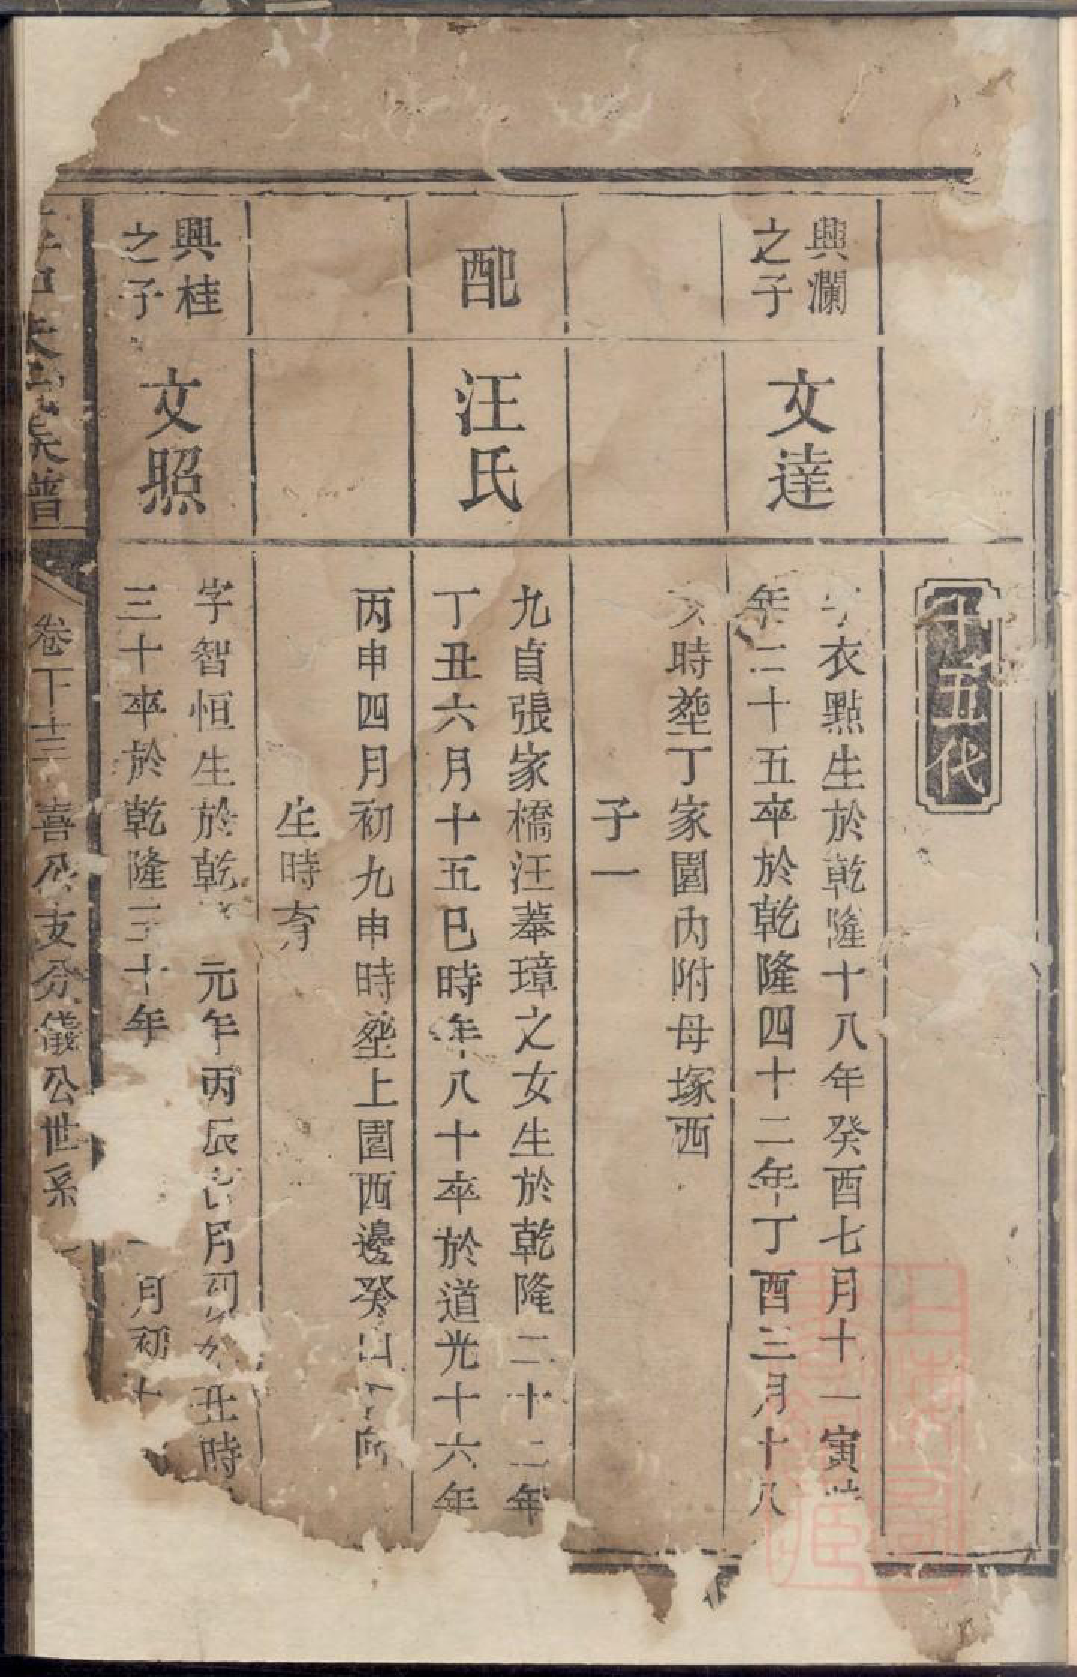 十五代
興瀾
之子
文達
字衣點生於乾隆十八年癸酉七月十一寅時
年二十五卒於乾隆四十二年丁酉三月十八
時塟丁家園內附母塚西
子一
配
汪氏
九貞張家橋汪菶璋之女生於乾隆二十二年
丁丑六月十五巳時年八十卒於道光十六年
丙申四月初九申時塟上園西邊癸山丁向
生時育
興桂
之子
文照
字智恒生於乾 元年丙辰 月初 丑時
三十卒於乾隆三十年 月初十
朱氏族譜
卷下十三 喜公支分儀公世系